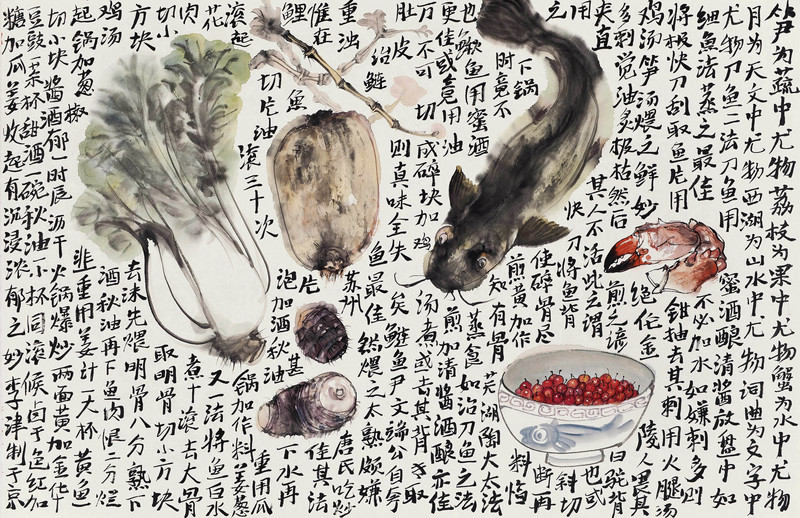 笋为蔬中尤物荔枝为果中尤物蟹为水中尤物
月为天文中尤物西湖为山水中尤物词曲为文字中
尤物刀鱼二法刀鱼用蜜酒酿清酱放盘中如
细鱼法蒸之最佳不必加水如嫌刺多则
将极快刀刮取鱼片用钳抽去其刺用火腿汤
鸡汤笋汤煨之鲜妙绝伦金陵人畏其
多刺竟油多极枯然后煎之谚曰驼背
夹直其人不活此之谓也或
用快刀将鱼背斜切
之使碎骨尽断再
下锅煎黄加作料临
时竟不知有骨芜湖陶大太法
也鲥鱼用蜜酒蒸食如治刀鱼之法
更佳或竟用油煎加清酱酒酿亦佳
万不可切成碎块加鸡汤煮或去其背专取
肚皮则真味全失矣鲢鱼尹文端公自夸
治鲢鱼最佳然煨之太熟颇嫌
重浊惟在苏州唐氏吃炒
鲤鱼片甚佳其法
切片油泡加酒秋油下水再
滚三十次
滚起锅加作料重用瓜姜葱
花又一法将鱼白水
肉切小煮十滚去大骨
切小方块取明骨切小方块
鸡汤去沫先煨明骨八分熟下
酒秋油再下鱼肉煨二分烂
起锅加葱椒韭重用姜汁一大杯黄鱼
切小块酱酒郁一时辰沥干火锅爆炒两面黄加金华
豆豉一茶杯甜酒一碗秋油一小杯同滚候卤干色红加
糖加瓜姜收起有沉浸浓郁之妙李津制于京